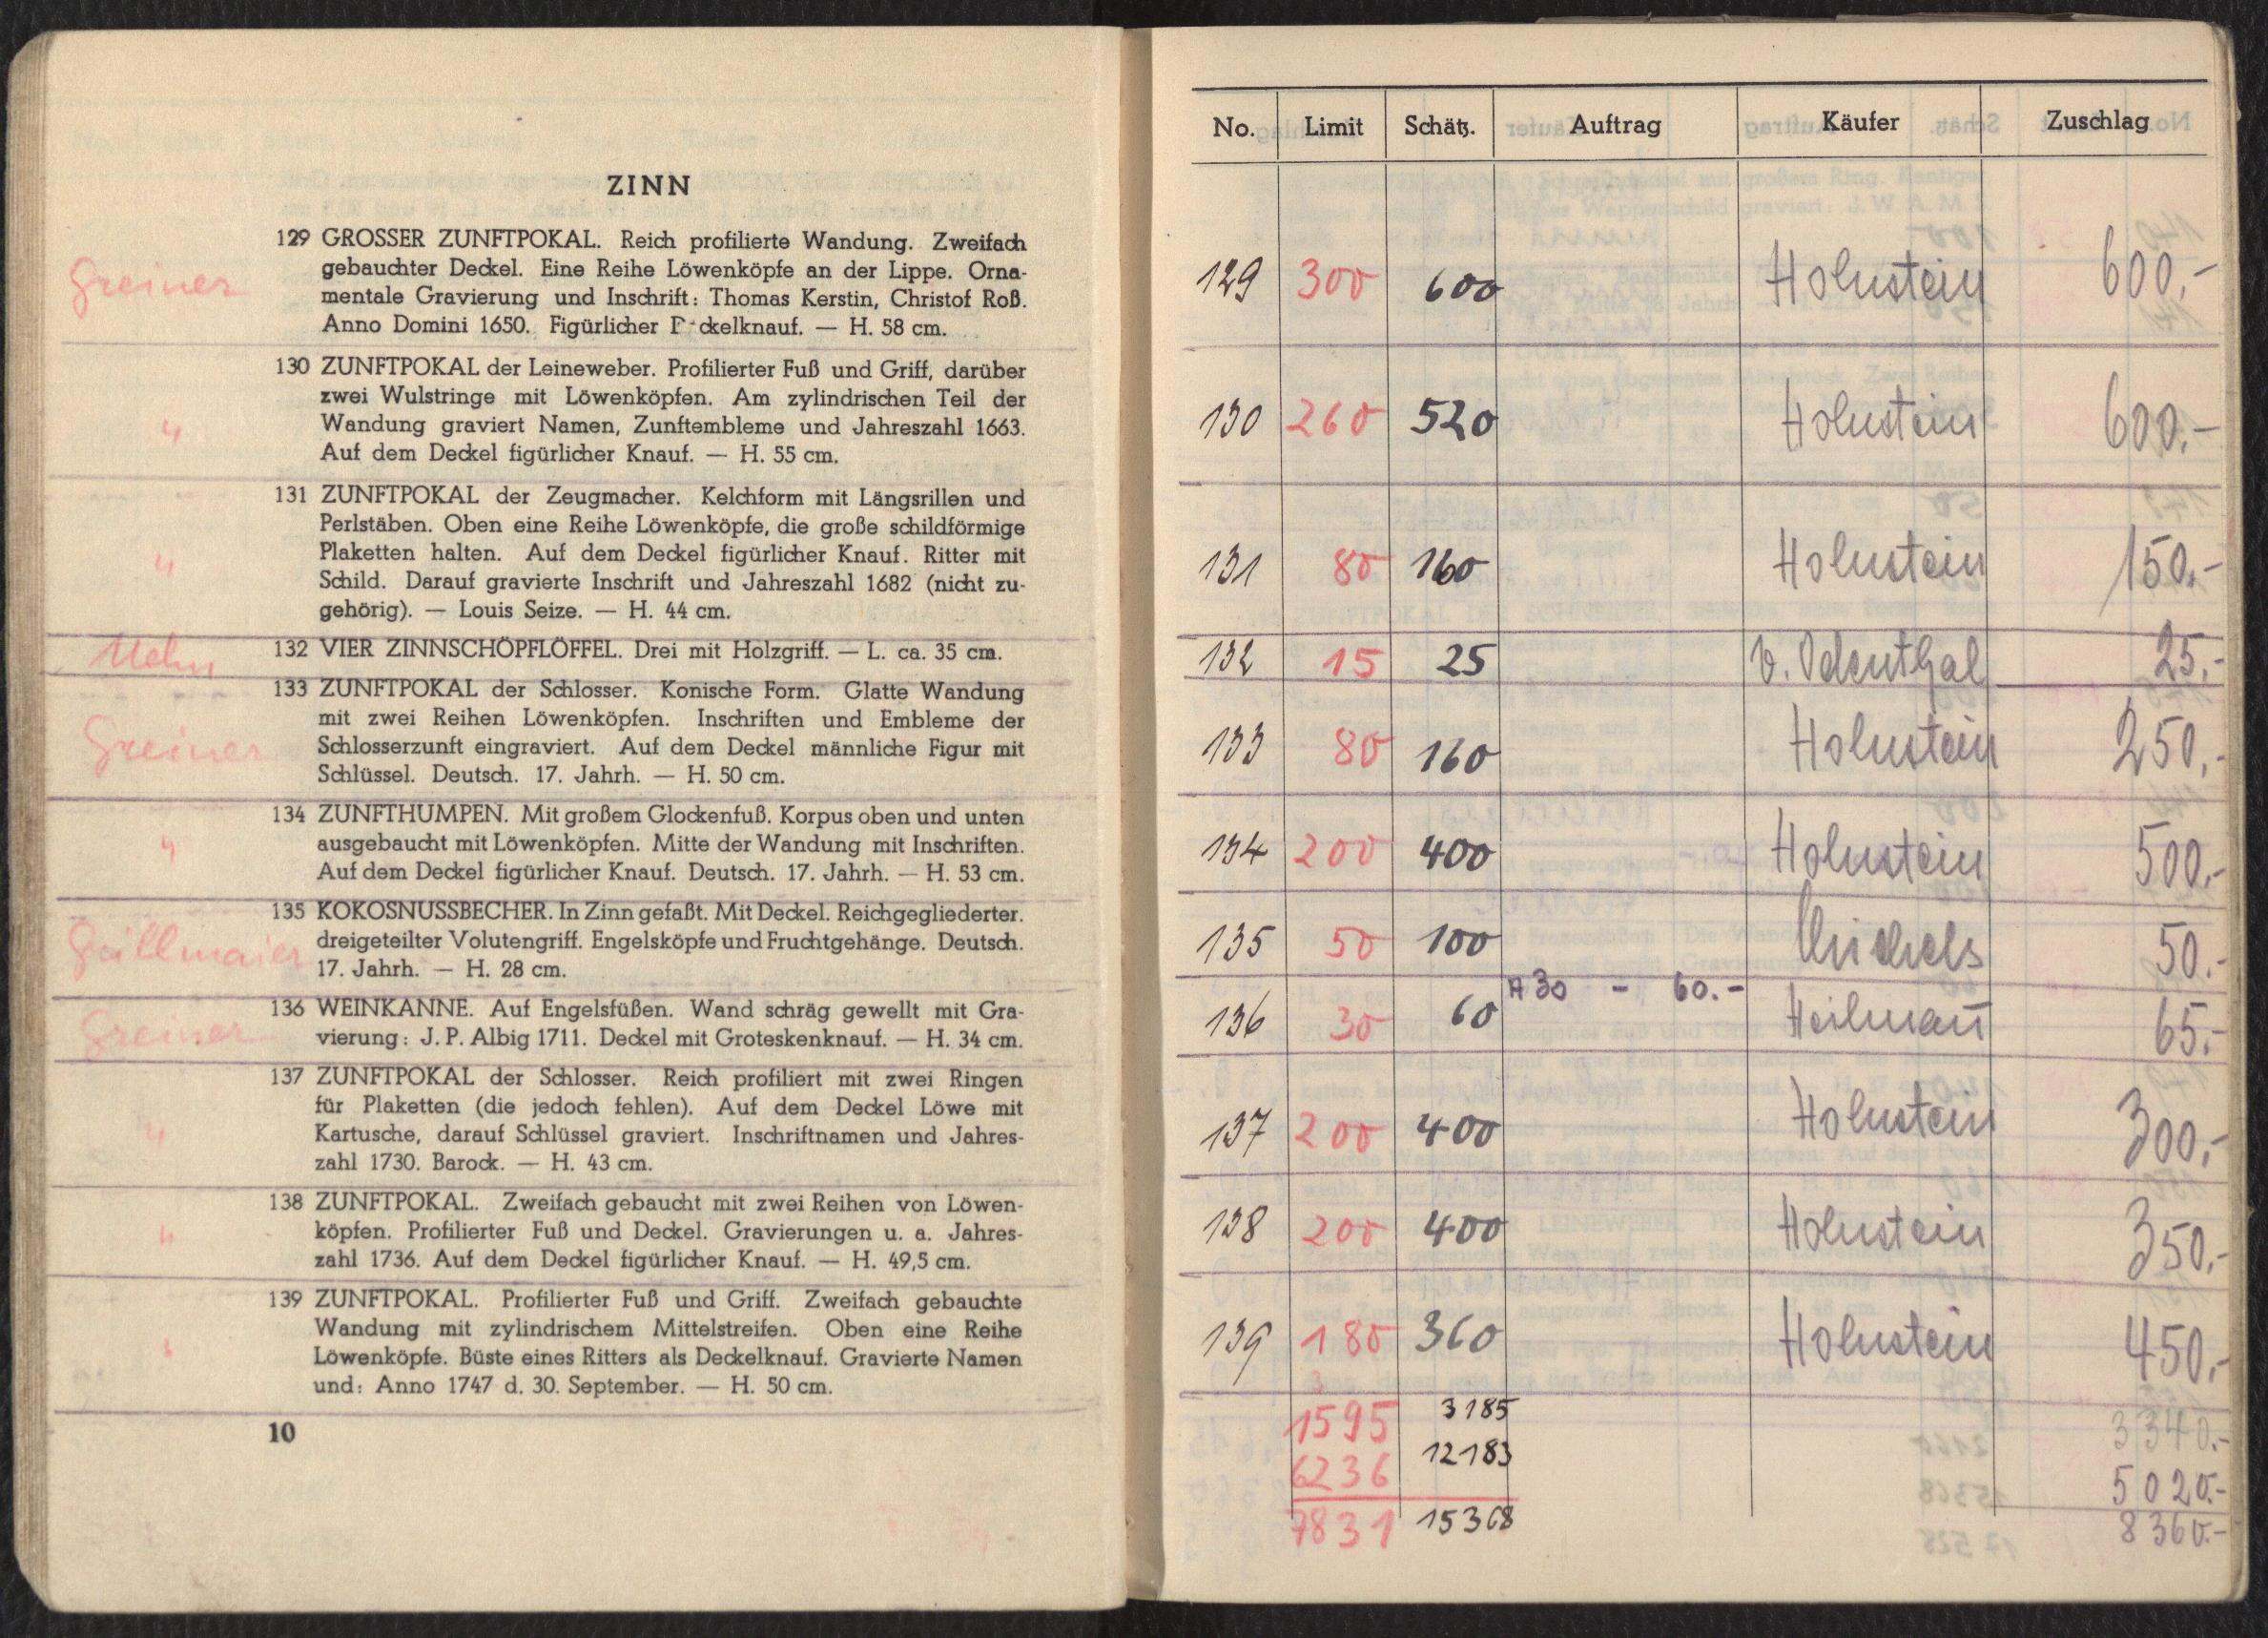 ZINN
Greiner
129 GROSSER ZUNFTPOKAL. Reich profilierte Wandung. Zweifach
gebauchter Deckel. Eine Reihe Löwenköpfe an der Lippe. Orna-
mentale Gravierung und Inschrift: Thomas Kerstin, Christof Roß.
Anno Domini 1650. Figürlicher D ckelknauf. — H. 58 cm.
"
130 ZUNFTPOKAL der Leineweber. Profilierter Fuß und Griff, darüber
zwei Wulstringe mit Löwenköpfen. Am zylindrischen Teil der
Wandung graviert Namen, Zunftembleme und Jahreszahl 1663.
Auf dem Deckel figürlicher Knauf. — H. 55 cm.
"
131 ZUNFTPOKAL der Zeugmacher. Kelchform mit Längsrillen und
Perlstäben. Oben eine Reihe Löwenköpfe, die große schildförmige
Plaketten halten. Auf dem Deckel figürlicher Knauf. Ritter mit
Schild. Darauf gravierte Inschrift und Jahreszahl 1682 (nicht zu-
gehörig). — Louis Seize. — H. 44 cm.
132 VIER ZINNSCHÖPFLÖFFEL. Drei mit Holzgriff. — L. ca. 35 cm.
Greiner
133 ZUNFTPOKAL der Schlosser. Konische Form. Glatte Wandung
mit zwei Reihen Löwenköpfen. Inschriften und Embleme der
Schlosserzunft eingraviert. Auf dem Deckel männliche Figur mit
Schlüssel. Deutsch. 17. Jahrh. — H. 50 cm.
"
134 ZUNFTHUMPEN. Mit großem Glockenfuß. Korpus oben und unten
ausgebaucht mit Löwenköpfen. Mitte der Wandung mit Inschriften.
Auf dem Deckel figürlicher Knauf. Deutsch. 17. Jahrh. — H. 53 cm.
Güllmaier
135 KOKOSNUSSBECHER. In Zinn gefaßt. Mit Deckel. Reichgegliederter.
dreigeteilter Volutengriff. Engelsköpfe und Fruchtgehänge. Deutsch.
17. Jahrh. — H. 28 cm.
Greiner
136 WEINKANNE. Auf Engelsfüßen. Wand schräg gewellt mit Gra-
vierung: J. P. Albig 1711. Deckel mit Groteskenknauf. — H. 34 cm.
"
137 ZUNFTPOKAL der Schlosser. Reich profiliert mit zwei Ringen
für Plaketten (die jedoch fehlen). Auf dem Deckel Löwe mit
Kartusche, darauf Schlüssel graviert. Inschriftnamen und Jahres-
zahl 1730. Barock. — H. 43 cm.
"
138 ZUNFTPOKAL. Zweifach gebaucht mit zwei Reihen von Löwen-
köpfen. Profilierter Fuß und Deckel. Gravierungen u. a. Jahres-
zahl 1736. Auf dem Deckel figürlicher Knauf. — H. 49,5 cm.
"
139 ZUNFTPOKAL. Profilierter Fuß und Griff. Zweifach gebauchte
Wandung mit zylindrischem Mittelstreifen. Oben eine Reihe
Löwenköpfe. Büste eines Ritters als Deckelknauf. Gravierte Namen
und: Anno 1747 d. 30. September. — H. 50 cm.
10
No. Limit Schätz. Auftrag Käufer Zuschlag
129 300 600 Holnstein 600.-
130 260 520 Holnstein 600.-
131 80 160 Holnstein 150.-
132 15 25 v. Odenthal 25.-
133 80 160 Holnstein 250.-
134 200 400 Holnstein 500.-
135 50 100 Michels 50.-
A 30 - 60.-
136 30 60 Heilman̄ 65.-
137 200 400 Holnstein 300.-
138 200 400 Holnstein 350.-
139 180 360 Holnstein 450.-
3
1595 3185 3340.-
6236 12183 5020.-
7831 15368 8360.-